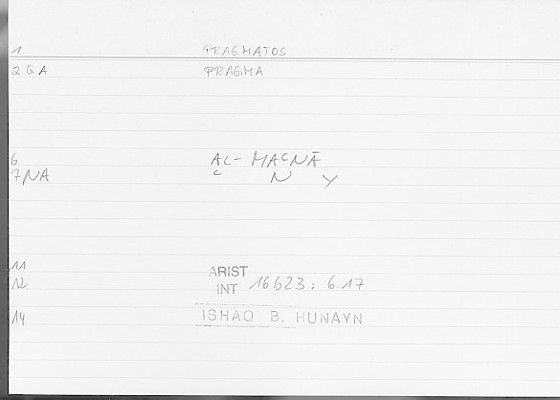 1 PRAGMATOS
2 G A PRAGMA
6 AL-MAʿNĀ
7 NA ʿ N Y
11 ARIST
12 INT 16623; 6.17
14 ISHAQ B. HUNAYN